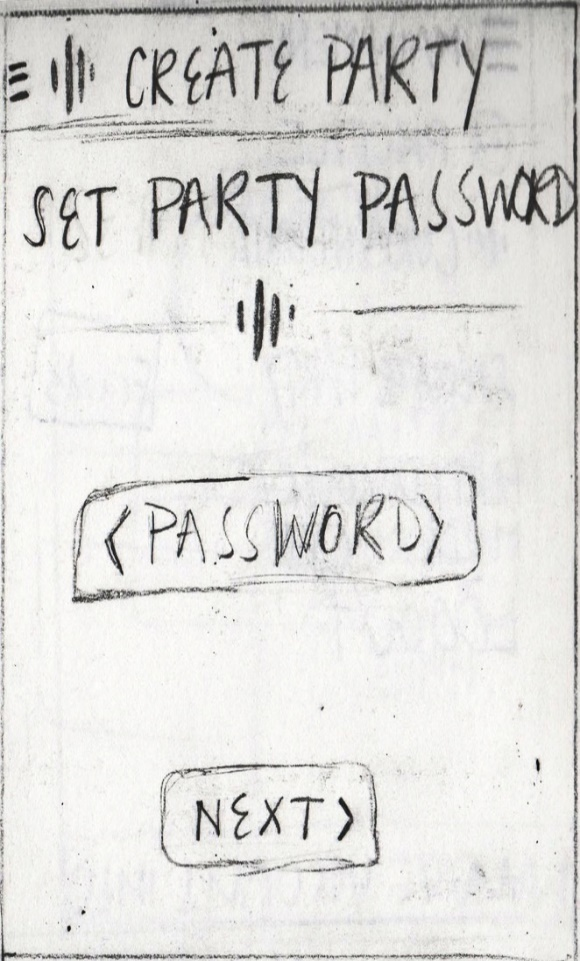 CREATE PARTY
SET PARTY PASSWORD
<PASSWORD>
NEXT >